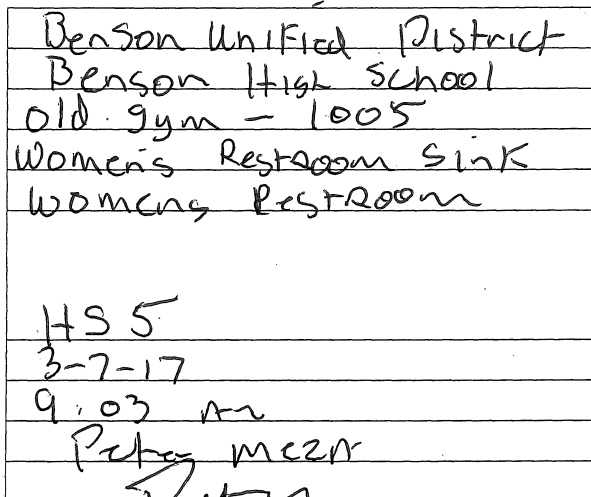 Benson Unified District
Benson High School
old gym - 1005
Women's Restroom Sink
Womens Restroom
HS 5
3-7-17
9:03 am
Peter